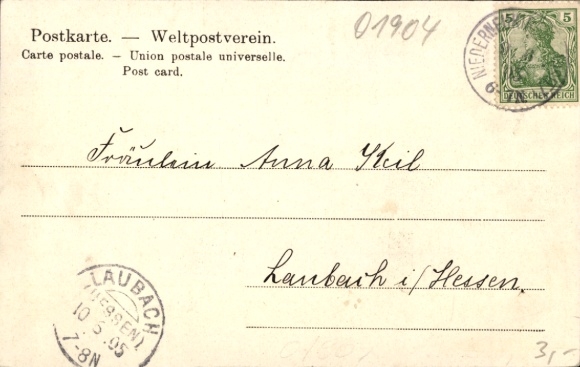 01904
Postkarte. — Weltpostverein.
Carte postale. - Union postale universelle.
Post card.
5 5
DEUTSCHES REICH
Fräulein Anna Keil
Laubach i/Hessen.
LAUBACH
(HESSEN)
10 5 05
7-8N
3,-